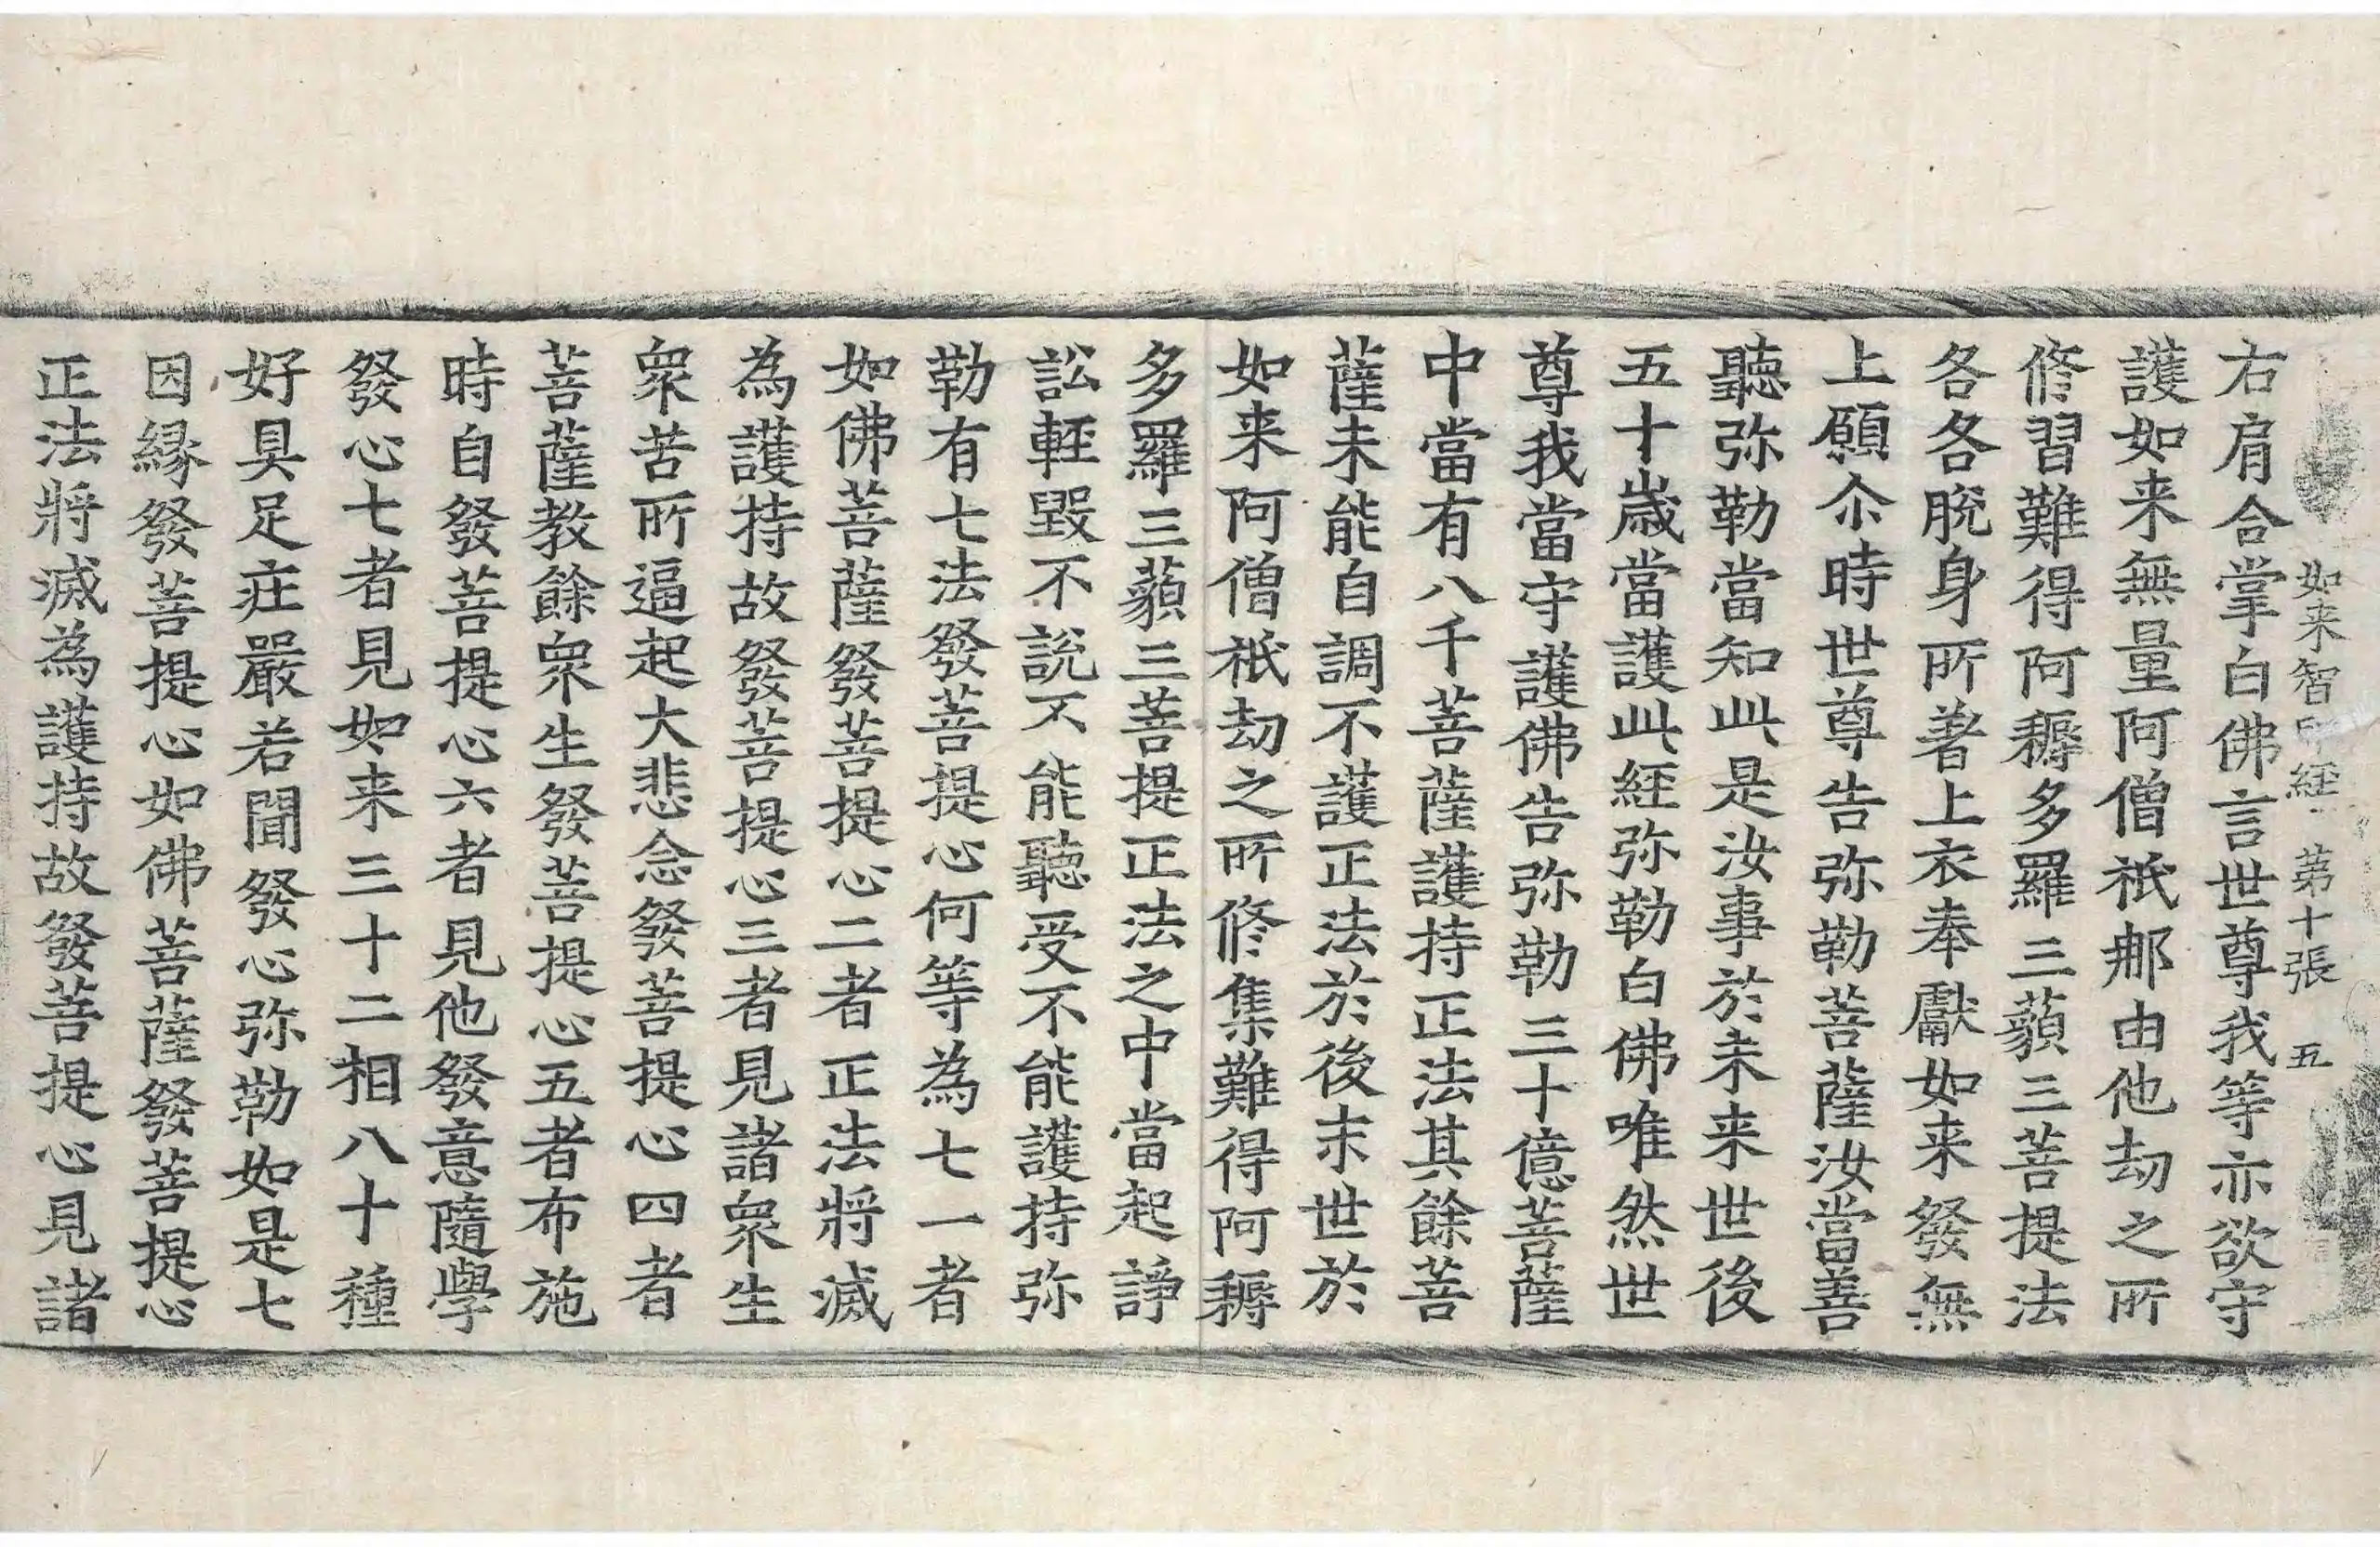 如来智印經 第十張 五
右肩合掌白佛言世尊我等亦欲守
護如来無量阿僧祇那由他劫之所
修習難得阿耨多羅三藐三菩提法
各各脫身所著上衣奉獻如来發無
上願尒時世尊告弥勒菩薩汝當善
聽弥勒當知此是汝事於未来世後
五十歳當護此經弥勒白佛唯然世
尊我當守護佛告弥勒三十億菩薩
中當有八千菩薩護持正法其餘菩
薩未能自調不護正法於後末世於
如来阿僧祇劫之所修集難得阿耨
多羅三藐三菩提正法之中當起諍
訟輕毀不說不能聽受不能護持弥
勒有七法發菩提心何等為七一者
如佛菩薩發菩提心二者正法將滅
為護持故發菩提心三者見諸衆生
衆苦所逼起大悲念發菩提心四者
菩薩教餘衆生發菩提心五者布施
時自發菩提心六者見他發意隨學
發心七者見如来三十二相八十種
好具足莊嚴若聞發心弥勒如是七
因縁發菩提心如佛菩薩發菩提心
正法將滅為護持故發菩提心見諸